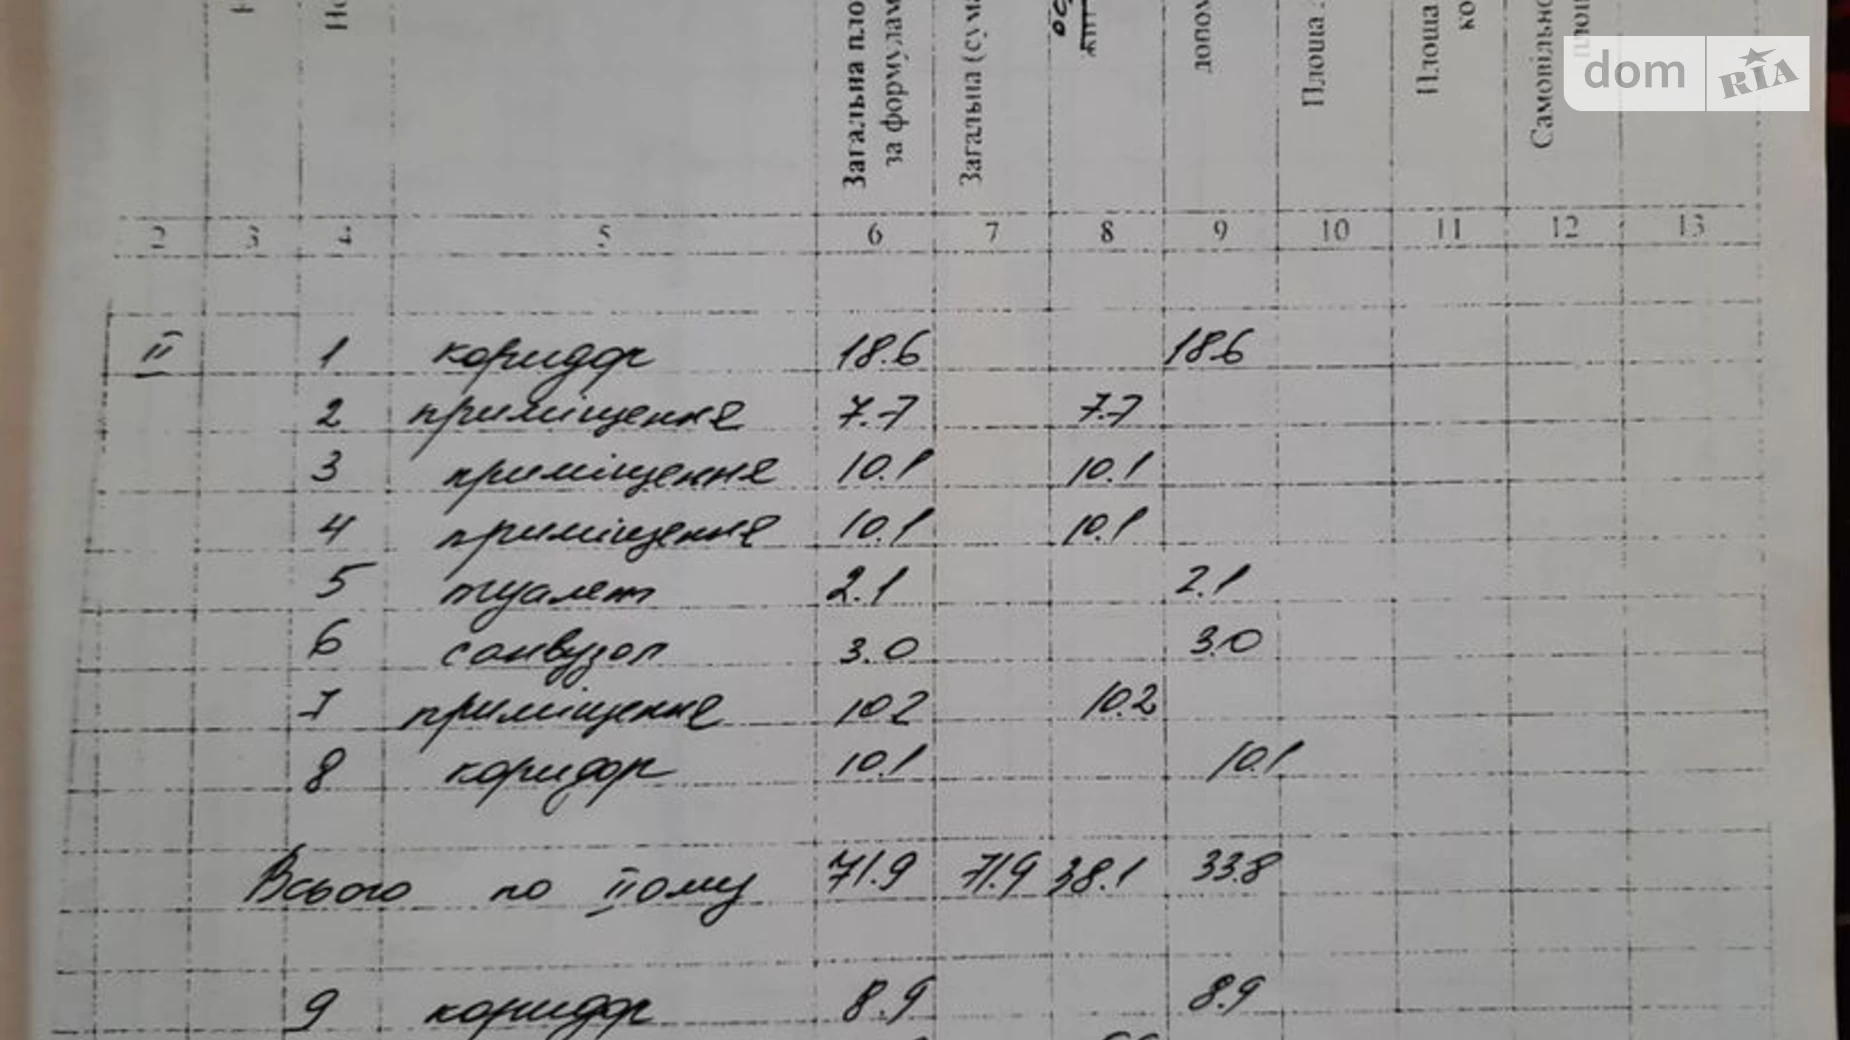 Загальна
за формулам
Загальна (сума
допом
Площа
Площа
Самовільно
dom RIA
2 3 4 5 6 7 8 9 10 11 12 13
II 1 коридор 18.6 18.6
2 приміщення 7.7 7.7
3 приміщення 10.1 10.1
4 приміщення 10.1 10.1
5 туалет 2.1 2.1
6 санвузол 3.0 3.0
7 приміщення 10.2 10.2
8 коридор 10.1 10.1
Всього по IIому 71.9 71.9 38.1 33.8
9 коридор 8.9 8.9